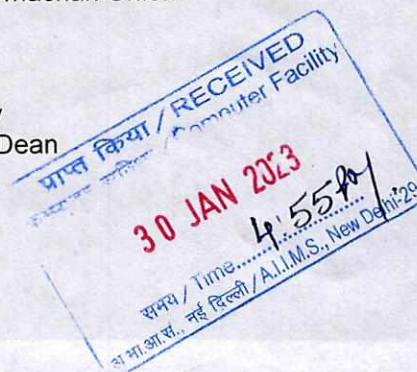 Dean
प्राप्त किया / RECEIVED
Computer Facility
30 JAN 2023
समय / Time 4:55 PM
अ.भा.आ.सं., नई दिल्ली / A.I.I.M.S., New Delhi-29